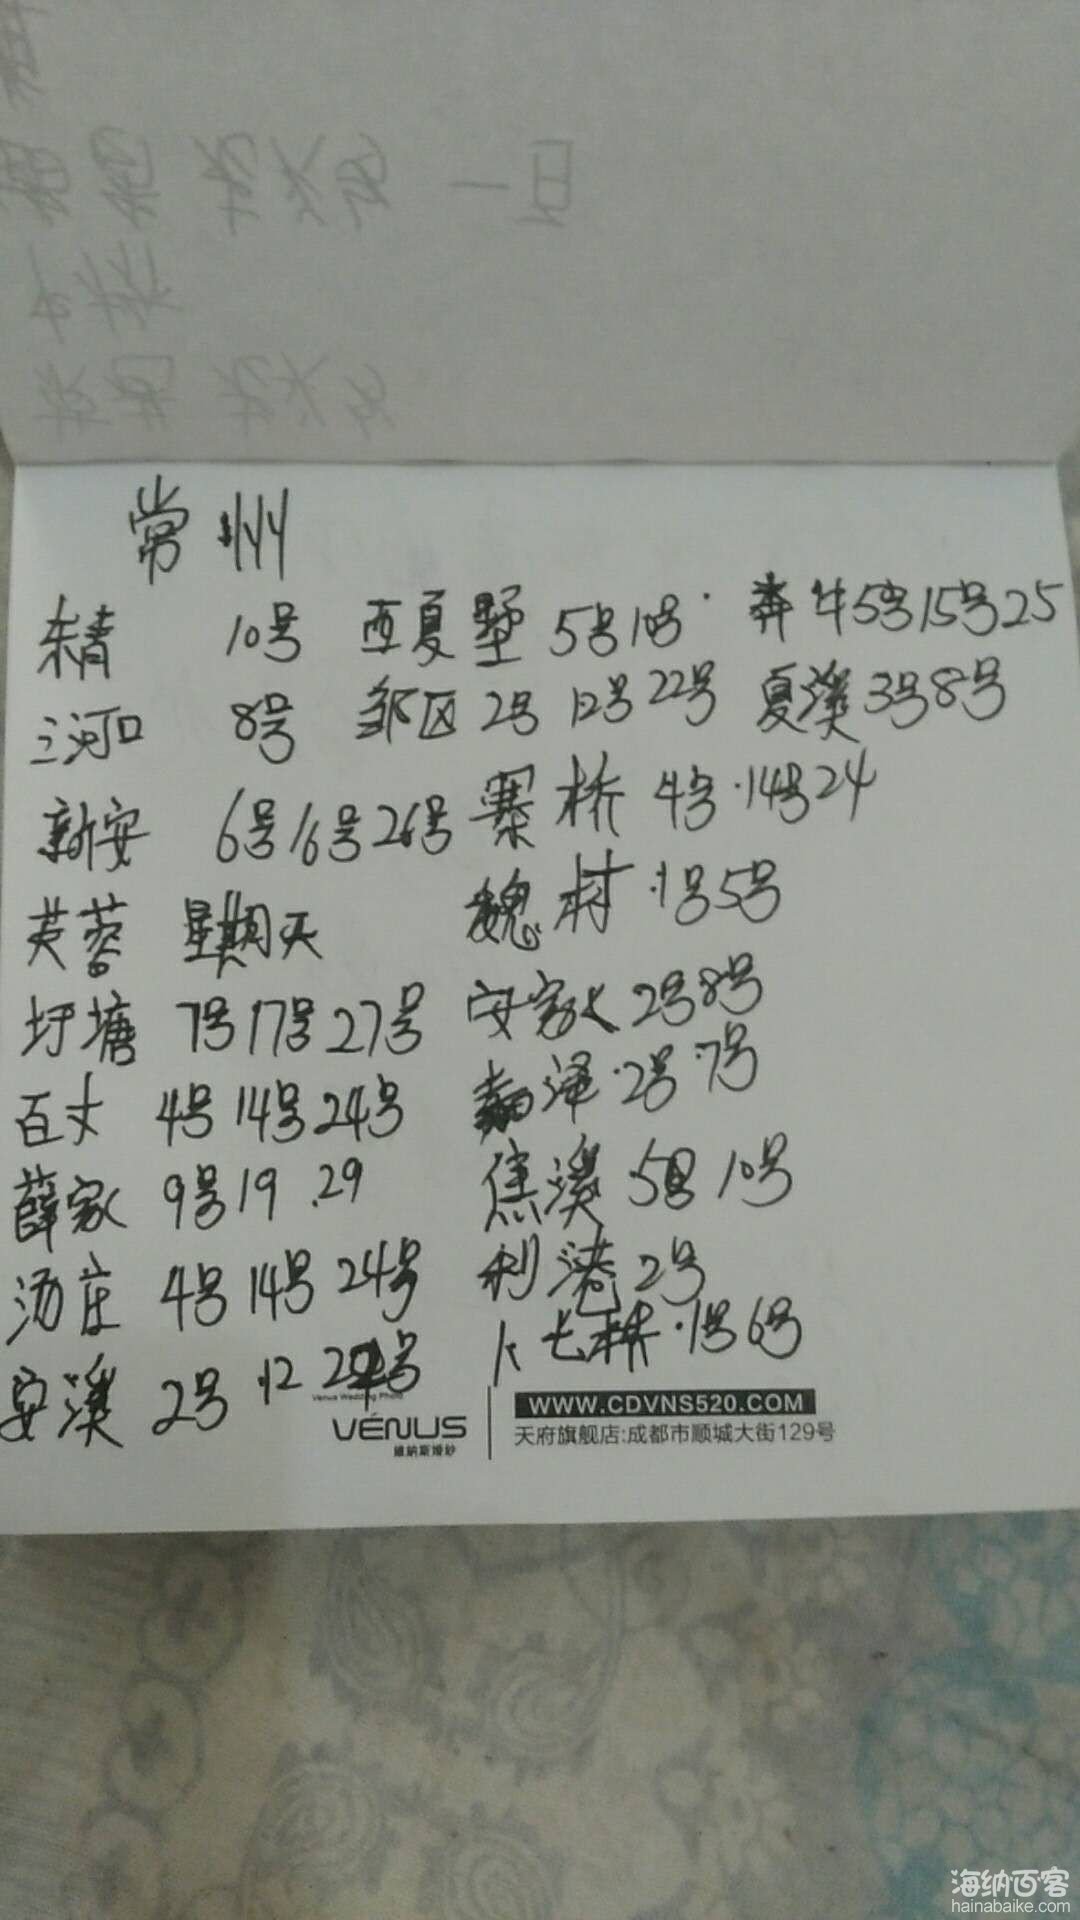 常州
东青 10号 西夏墅 5号10号 奔牛5号15号25
三河口 8号 邹区 2号 12号 22号 夏溪3号8号
新安 6号16号26号 寨桥 4号·14号24
芙蓉 星期天 魏村·1号5号
圩塘 7号17号27号 安家 2号8号
百丈 4号14号24号 泽·2号·7号
薛家 9号19.29 焦溪 5号10号
汤庄 4号14号24号 利港2号
安溪 2号·12 号 ·1号6号
Venus Wedding Photo
VENUS
維納斯婚紗
WWW.CDVNS520.COM
天府旗舰店:成都市顺城大街129号
海纳百客
hainabaike.com